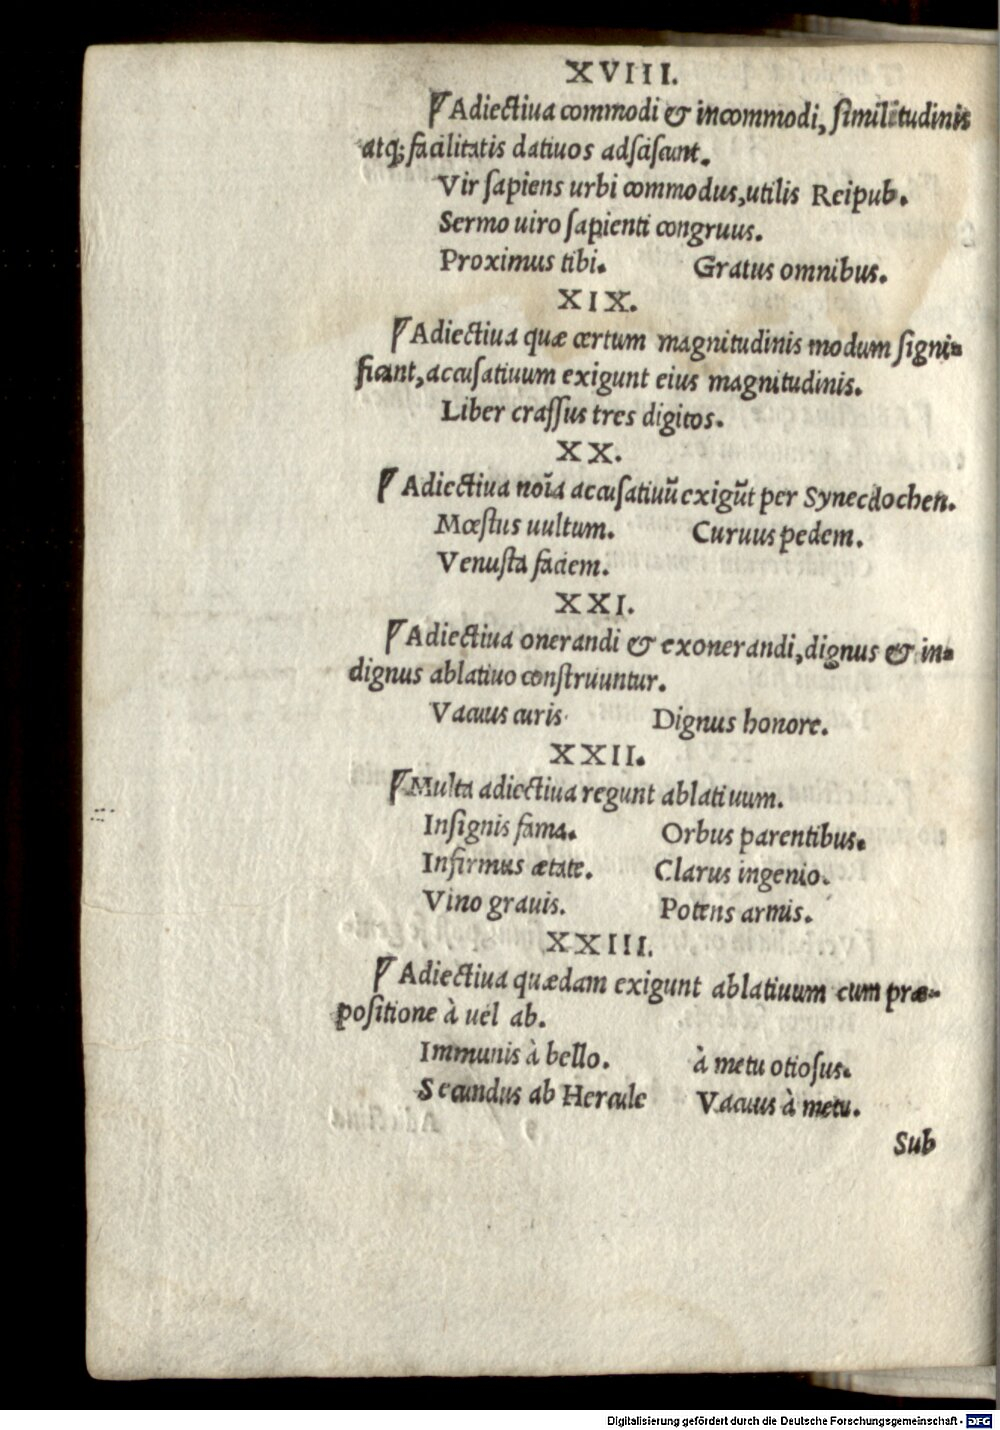 XVIII.
¶Adiectiua commodi & incommodi, ſimilitudinis
atq; facilitatis datiuos adſciſcunt.
Vir ſapiens urbi commodus,utilis Reipub.
Sermo uiro ſapienti congruus.
Proximus tibi. Gratus omnibus.
XIX.
¶Adiectiua quæ certum magnitudinis modum ſigni-
ficant,accuſatiuum exigunt eius magnitudinis.
Liber craſſus tres digitos.
XX.
¶Adiectiua noīa accuſatiuū exigūt per Synecdochen.
Mœſtus uultum. Curuus pedem.
Venuſta faciem.
XXI.
¶Adiectiua onerandi & exonerandi,dignus & in-
dignus ablatiuo conſtruuntur.
Vacuus curis. Dignus honore.
XXII.
¶Multa adiectiua regunt ablatiuum.
Inſignis fama. Orbus parentibus.
Infirmus ætate. Clarus ingenio.
Vino grauis. Potens armis.
XXIII.
¶Adiectiua quædam exigunt ablatiuum cum præ-
poſitione à uel ab.
Immunis à bello. à metu otioſus.
Secundus ab Hercule Vacuus à metu.
Sub
Digitalisierung gefördert durch die Deutsche Forschungsgemeinschaft - DFG